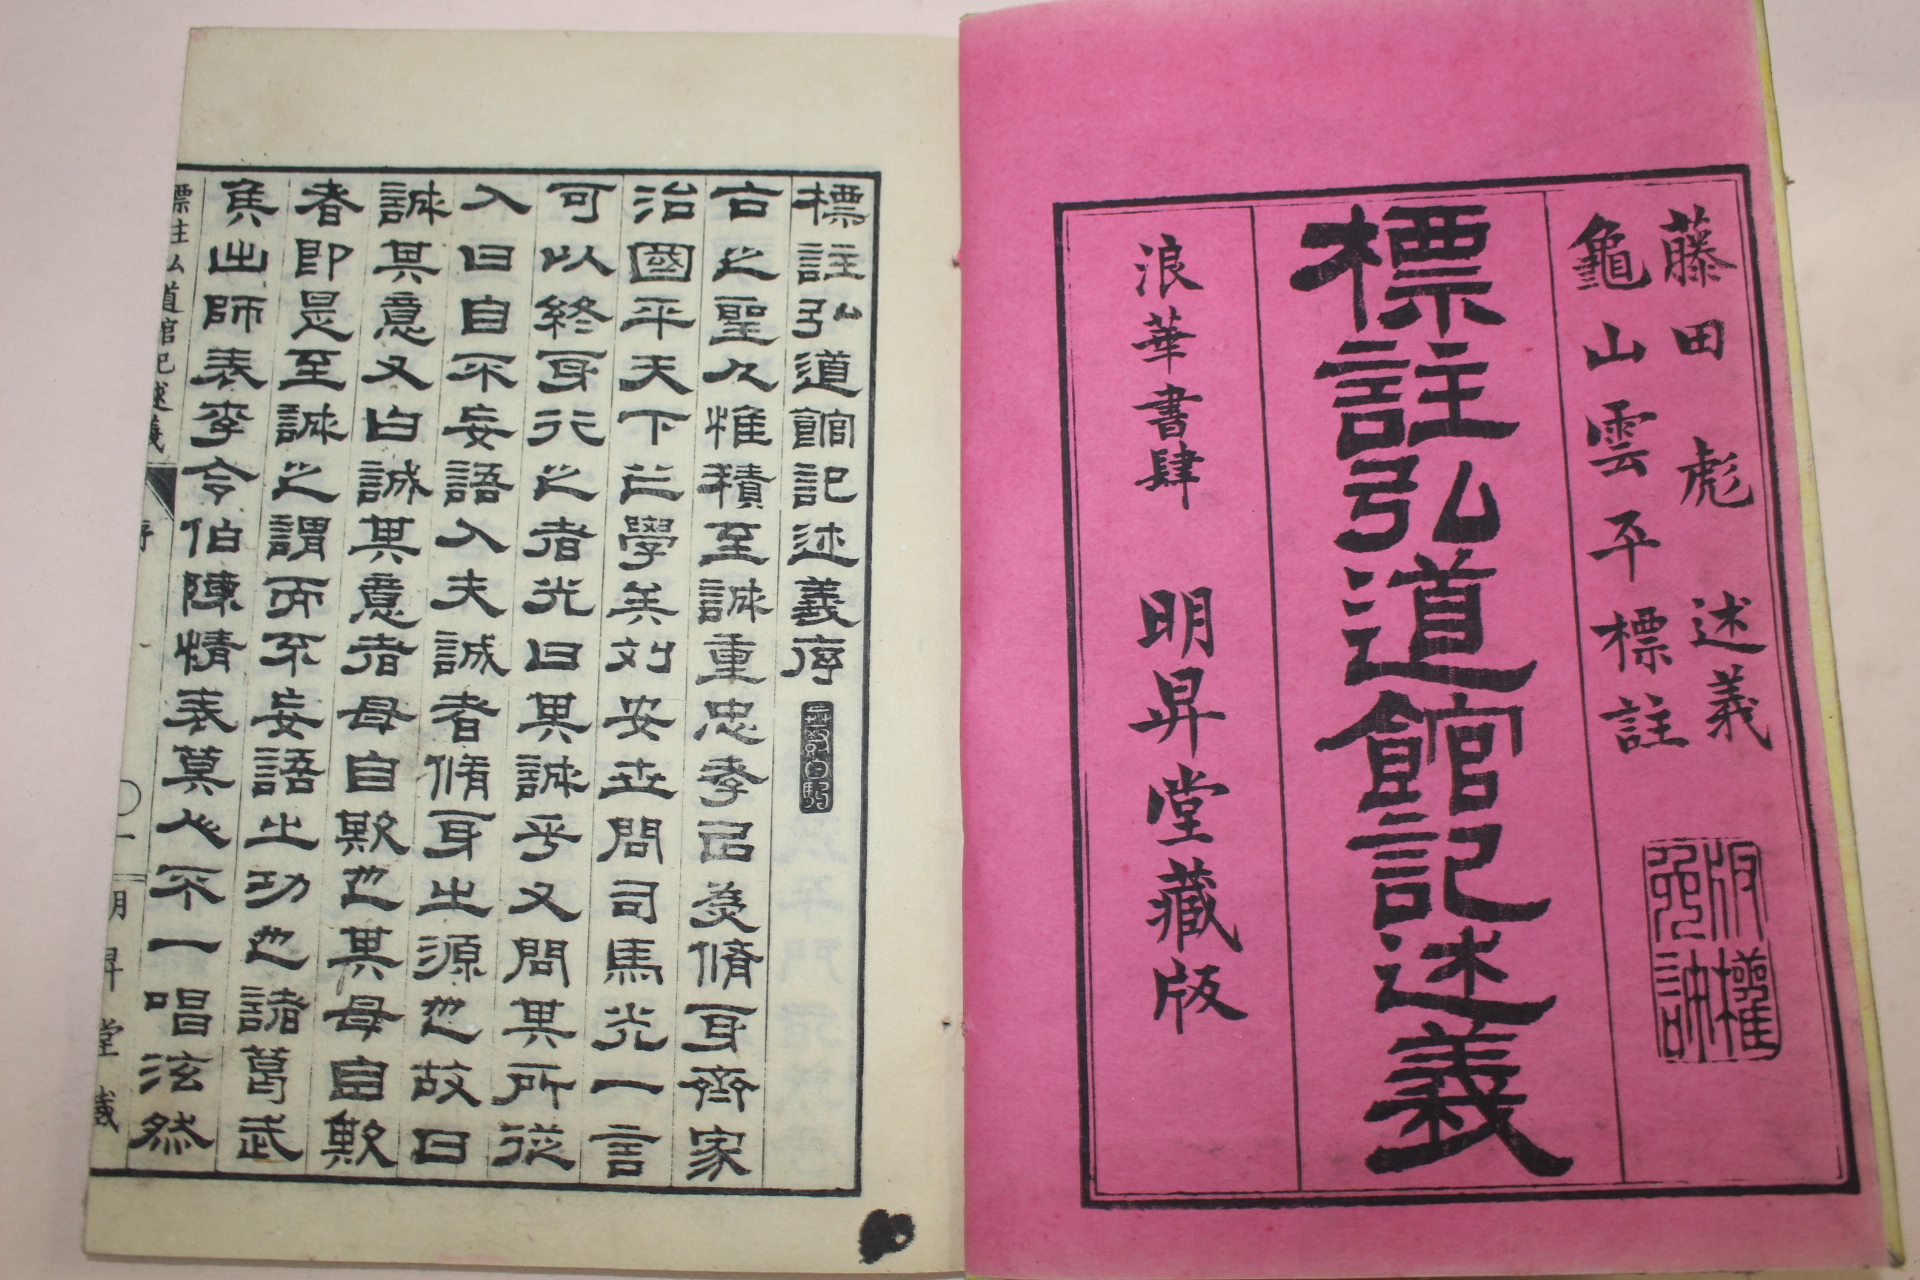 藤田彪述義
龜山雲平標註
版權免許
標註弘道館記述義
浪華書肆 明昇堂藏版
標註弘道館記述義序
古之聖人惟積至誠重忠孝己爲脩身齊家
治國平天下之學矣劉安世問司馬光一言
可以終身行之者光曰其誠乎又問其所從
入曰自不妄語入夫誠者脩身之源也故曰
誠其意又曰誠其意者毋自欺也其毋自欺
者即是至誠之謂而不妄語之功也諸葛武
矦出師表李令伯陳情表莫人不一唱泫然
標註弘道館記述義
序
一
明昇堂藏